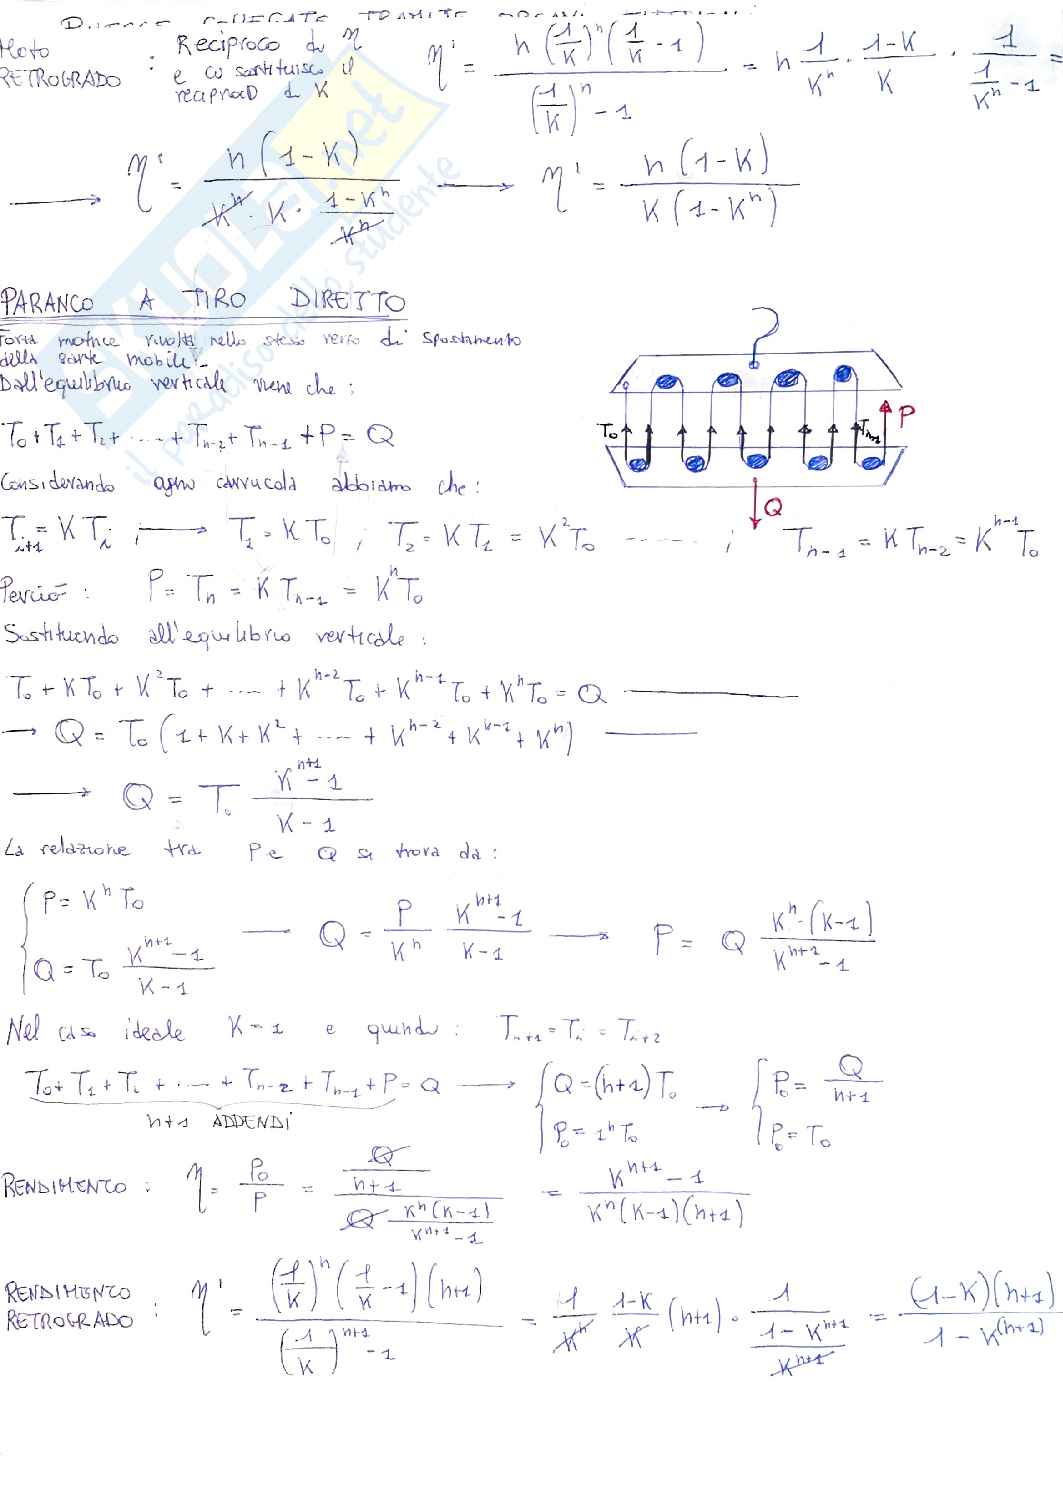 COLLEGATE TRAMITE ORGANI
Moto RETROGRADO : Reciproco di η e ci sostituisco il reciproco di K η' = n(1/K)^n(1/K - 1) / ((1/K)^n - 1) = n 1/K^n · (1-K)/K · 1/(1/K^n - 1) =
⟶ η' = n(1-K) / (K^n · K · (1-K^n)/K^n) ⟶ η' = n(1-K) / (K(1-K^n))
PARANCO A TIRO DIRETTO
Forza motrice rivolta nello stesso verso di spostamento
della parte mobile.
Dall'equilibrio verticale viene che :
T₀+T₁+T₂+ ..... + Tn-2 + Tn-1 + P = Q
T₀ Tn-1 P Q
Considerando ogni carrucola abbiamo che :
Ti+1 = K Ti ; ⟶ T₁ = K T₀ ; T₂ = K T₁ = K² T₀ ------ ; Tn-1 = K Tn-2 = K^n-1 T₀
Perciò : P = Tn = K Tn-1 = K^n T₀
Sostituendo all'equilibrio verticale :
T₀ + KT₀ + K²T₀ + ..... + K^n-2 T₀ + K^n-1 T₀ + K^n T₀ = Q
→ Q = T₀ (1 + K + K² + ..... + K^n-2 + K^n-1 + K^n)
⟶ Q = T₀ (K^n+1 - 1)/(K - 1)
La relazione tra P e Q si trova da :
{ P = K^n T₀
Q = T₀ (K^n+1 - 1)/(K - 1) — Q = P/K^n (K^n+1 - 1)/(K - 1) ⟶ P = Q K^n·(K-1)/(K^n+1 - 1)
Nel caso ideale K = 1 e quindi : Tn+1 = Tn = Tn+2
T₀+T₁+Ti + ..... + Tn-2 + Tn-1 + P = Q ⟶ { Q = (n+1) T₀ → { P₀ = Q/(n+1)
n+1 ADDENDI P₀ = 1^n T₀ P₀ = T₀
RENDIMENTO : η = P₀/P = (Q/(n+1)) / (Q K^n(K-1)/(K^n+1 - 1)) = (K^n+1 - 1)/(K^n(K-1)(n+1))
RENDIMENTO RETROGRADO : η' = (1/K)^n (1/K - 1)(n+1) / ((1/K)^n+1 - 1) = 1/K^n (1-K)/K (n+1) · 1/((1 - K^n+1)/K^n+1) = (1-K)(n+1)/(1 - K^(n+1))